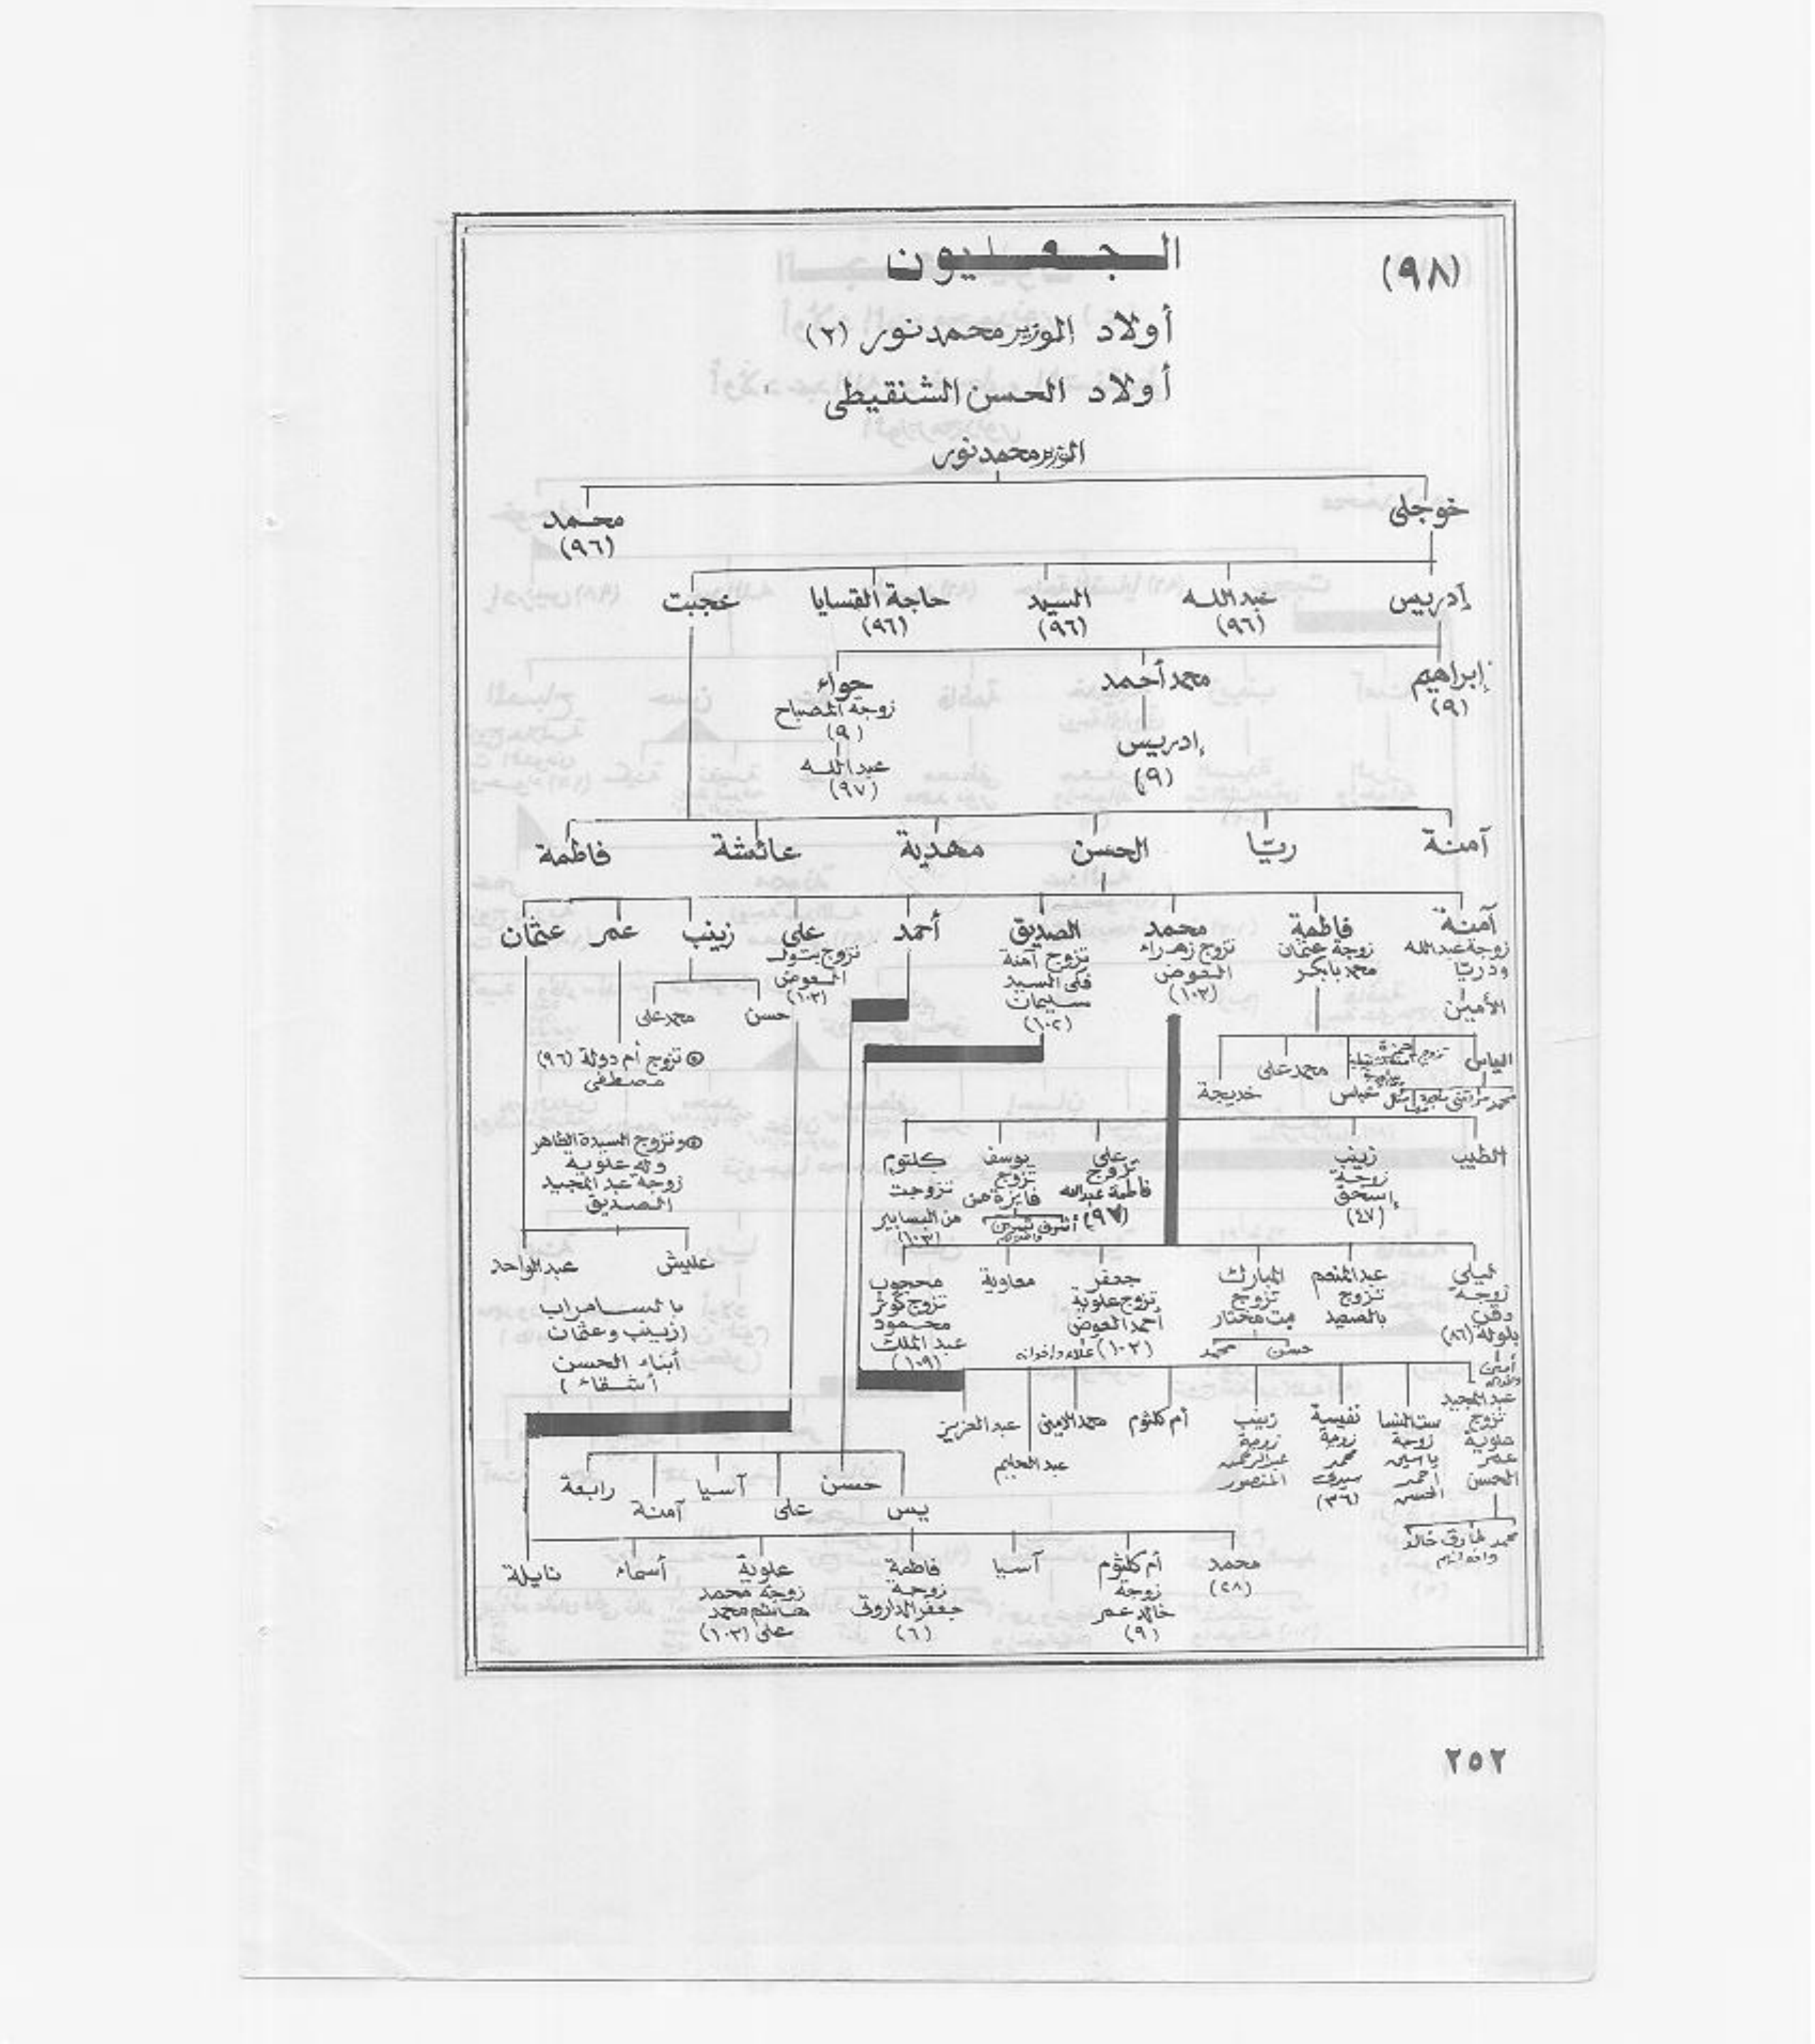 (٩٨)
الجعليون
أولاد الوزير محمد نور (٢)
أولاد الحسن الشنقيطى
الوزير محمد نور
خوجلى
محمد
(٩٦)
إدريس
عبدالله
(٩٦)
السيد
(٩٦)
حاجة القسايا
(٩٦)
خجبت
إبراهيم
(٩)
محمد أحمد
إدريس
(٩)
حواء
زوجة المصباح
(٩)
عبدالله
(٩٧)
آمنة
ريّا
الحسن
مهدية
عائشة
فاطمة
آمنة
زوجة عبدالله
ودريّا
الأمين
فاطمة
زوجة عثمان
محمد بابكر
محمد
تزوج زهراء
العوض
(١٠٣)
الصديق
تزوج آمنة
فكى السيد
سليمان
(١٠٢)
أحمد
على
تزوج بتول
العوض
(١٠٣)
زينب
عمر
عثمان
حسن
محمد على
الياس
عباس
محمد على
خديجة
تزوج أم دولة (٩٦)
مصطفى
وتزوج السيدة الطاهر
وله علوية
زوجة عبد المجيد
الصديق
عليش
عبدالواحد
بالسامراب
(زينب وعثمان
أبناء الحسن
أشقاء)
الطيب
زينب
زوجة
إسحق
(٤٧)
على
تزوج
فاطمة عبدالله
(٩٧)
يوسف
تزوج
فايزة حسن
كلتوم
تزوجت
من البسابير
(١٠٣)
ليلى
زوجة
دفن
بلولة (٨٦)
أمين
عبدالمنعم
تزوج
بالصعيد
المبارك
تزوج
بت مختار
حسن
محمد
جعفر
تزوج علوية
أحمد العوض
(١٠٣) علاء واخوانه
معاوية
محجوب
تزوج كوثر
محمود
عبد الملك
(١٠٩)
عبد المجيد
تزوج
علوية
عمر
الحسن
محمد طارق خالد
واخوانهم
ست النسا
زوجة
ياسين
أحمد
الحسن
نفيسة
زوجة
محمد
سيدى
(٣٦)
زينب
زوجة
عبدالرحمن
المنصور
أم كلثوم
محمد الامين
عبد الحليم
عبد العزيز
يس
حسن
على
آسيا
آمنة
رابعة
محمد
(٢٨)
أم كلثوم
زوجة
خالد عمر
(٩)
آسيا
فاطمة
زوجة
جعفر الداروتى
(٦)
علوية
زوجة محمد
هاشم محمد
على (١٠٣)
أسماء
نايلة
٢٥٢